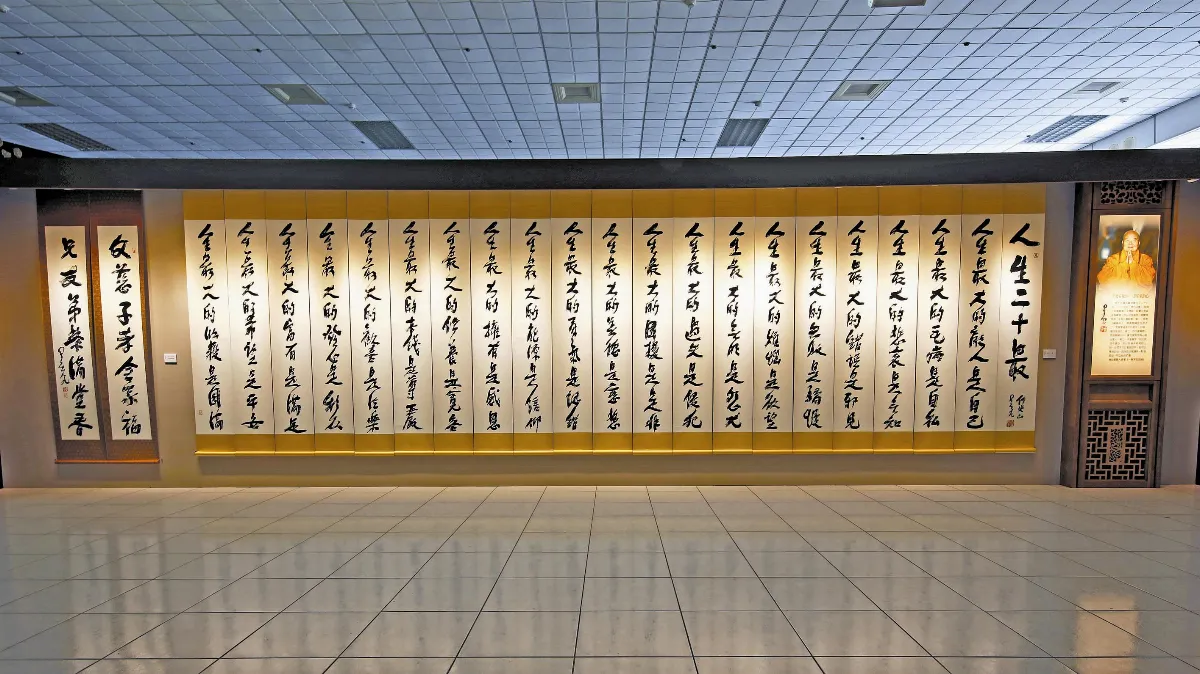 人生二十最
人生最大的敵人是自己
人生最大的毛病是自私
人生最大的悲哀是無知
人生最大的錯誤是邪見
人生最大的失敗是驕慢
人生最大的煩惱是欲望
人生最大的無明是怨尤
人生最大的過失是侵犯
人生最大的困擾是是非
人生最大的美德是慈悲
人生最大的勇氣是認錯
人生最大的能源是信仰
人生最大的擁有是感恩
人生最大的修養是寬容
人生最大的本錢是尊嚴
人生最大的歡喜是法樂
人生最大的發心是利他
人生最大的富有是滿足
人生最大的希望是平安
人生最大的收穫是圓滿
父慈子孝全家福
兄友弟恭滿堂香